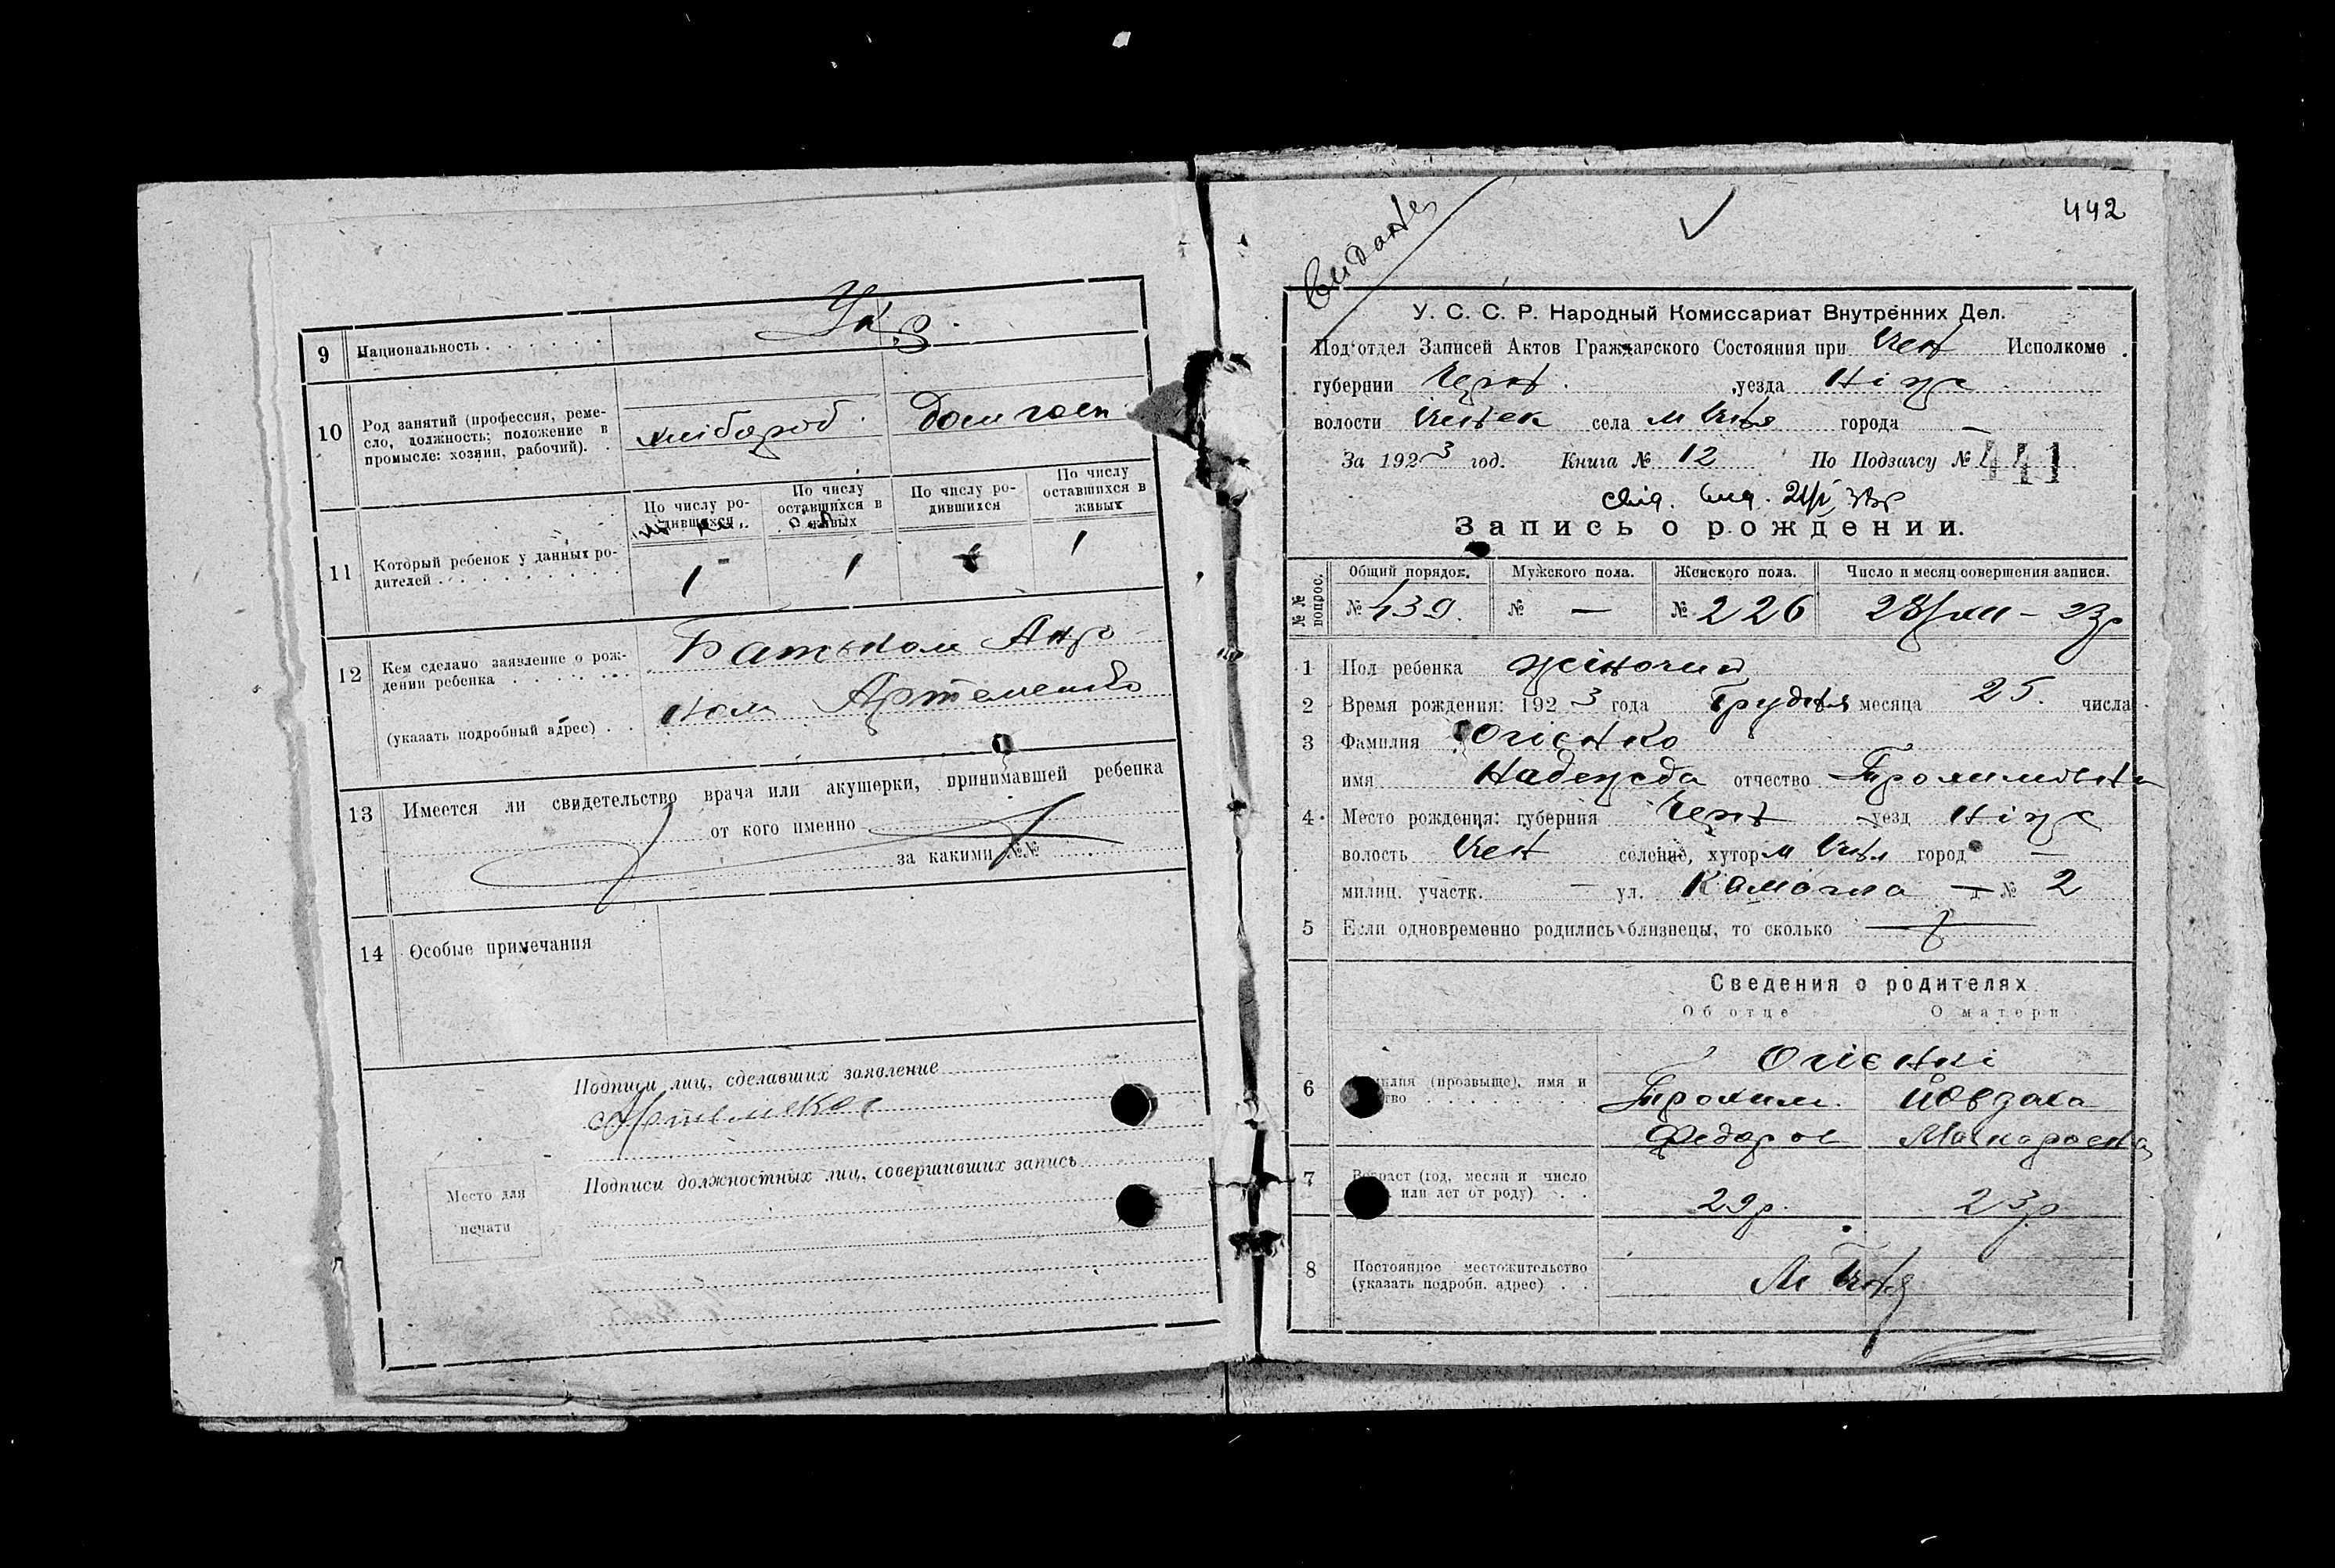 9 Национальность . . . . . . Укр.
10 Род занятий (профессия, реме-
сло, должность; положение в
промысле: хозяин, рабочий). . хлібороб. Дом госп
11 Который ребенок у данных ро-
дителей . . . . . . . . . .
По числу ро-
дившихся
По числу
оставшихся в
живых
По числу ро-
дившихся
По числу
оставшихся в
живых
1 1 1
12 Кем сделано заявление о рож-
дении ребенка . . . . . . . Батьком Анр
(указать подробный адрес) . . ком Артеменко
13 Имеется ли свидетельство врача или акушерки, принимавшей ребенка
от кого именно
за какими №№
14 Особые примечания
Подписи лиц, сделавших заявление
Подписи должностных лиц, совершивших запись
Место для
печати
442
Видано
У. С. С. Р. Народный Комиссариат Внутренних Дел.
Под‘отдел Записей Актов Гражданского Состояния при Ичен Исполкоме.
губернии Черн. уезда Ніж
волости Ичнек села м Ичня города —
За 1923 год. Книга № 12 По Подзагсу № 441
свід. вид.
Запись о рождении.
№№ вопрос.
Общий порядок. Мужского пола. Женского пола. Число и месяц совершения записи.
№ 439. № — № 226 28/XII – 23р
1 Пол ребенка жіночий
2 Время рождения: 1923 года Грудня месяца 25. числа.
3 Фамилия Огієнко
имя Надежда отчество Трохимовна
4 Место рождения: губерния Черн уезд Ніж
волость Ичен селение, хутор м Ичня город —
милиц. участк. — ул. Камогла — д № 2
5 Если одновременно родились близнецы, то сколько
Сведения о родителях
Об отце О матери
6 (прозвыще), имя и Огієнкі
Трохим. Йовдаха
Федоров Макаровна
7 Возраст (год, месяц и число
или лет от роду) . . 29р. 23р
8 Постоянное местожительство
(указать подробн. адрес) . . М Ичня